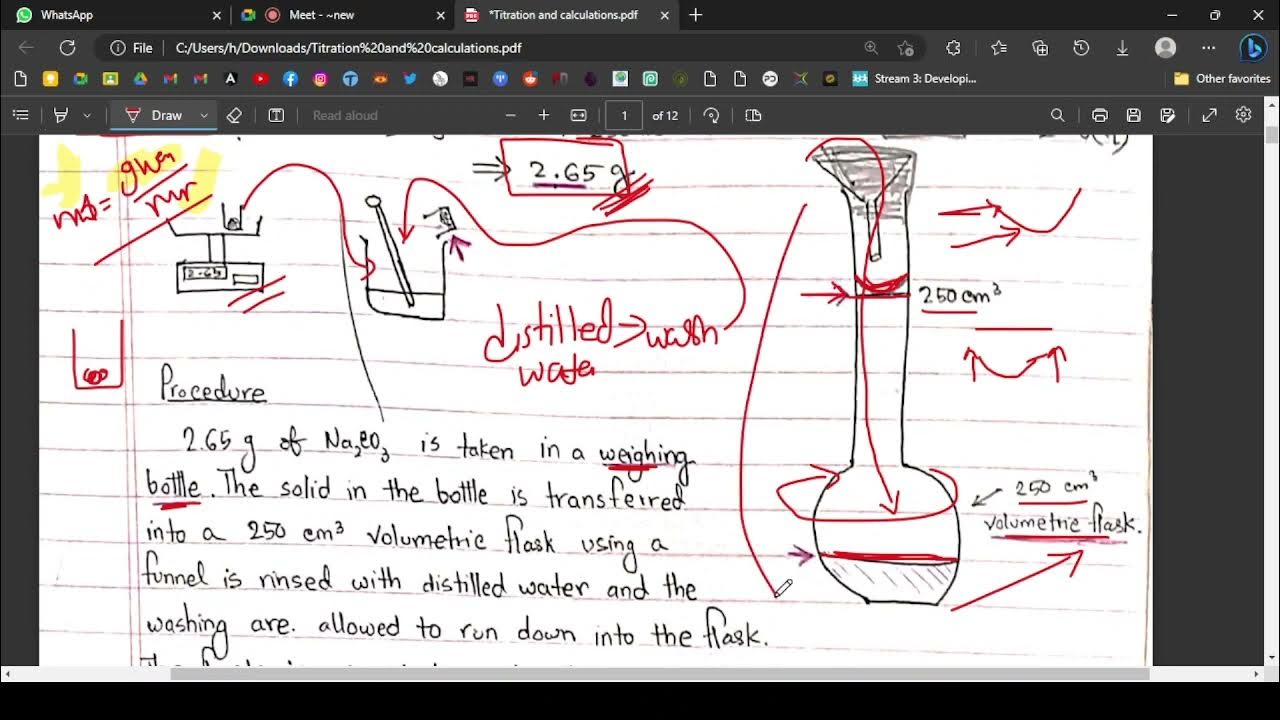 WhatsApp
Meet - ~new
*Titration and calculations.pdf
File
C:/Users/h/Downloads/Titration%20and%20calculations.pdf
Stream 3: Developi...
Other favorites
Draw
Read aloud
1
of 12
⇒ 2.65 g
2.65
250 cm³
distilled → wash
water
Procedure
2.65 g of Na₂CO₃ is taken in a weighing
bottle. The solid in the bottle is transferred
into a 250 cm³ volumetric flask using a
funnel is rinsed with distilled water and the
washing are. allowed to run down into the flask.
250 cm³
volumetric flask.